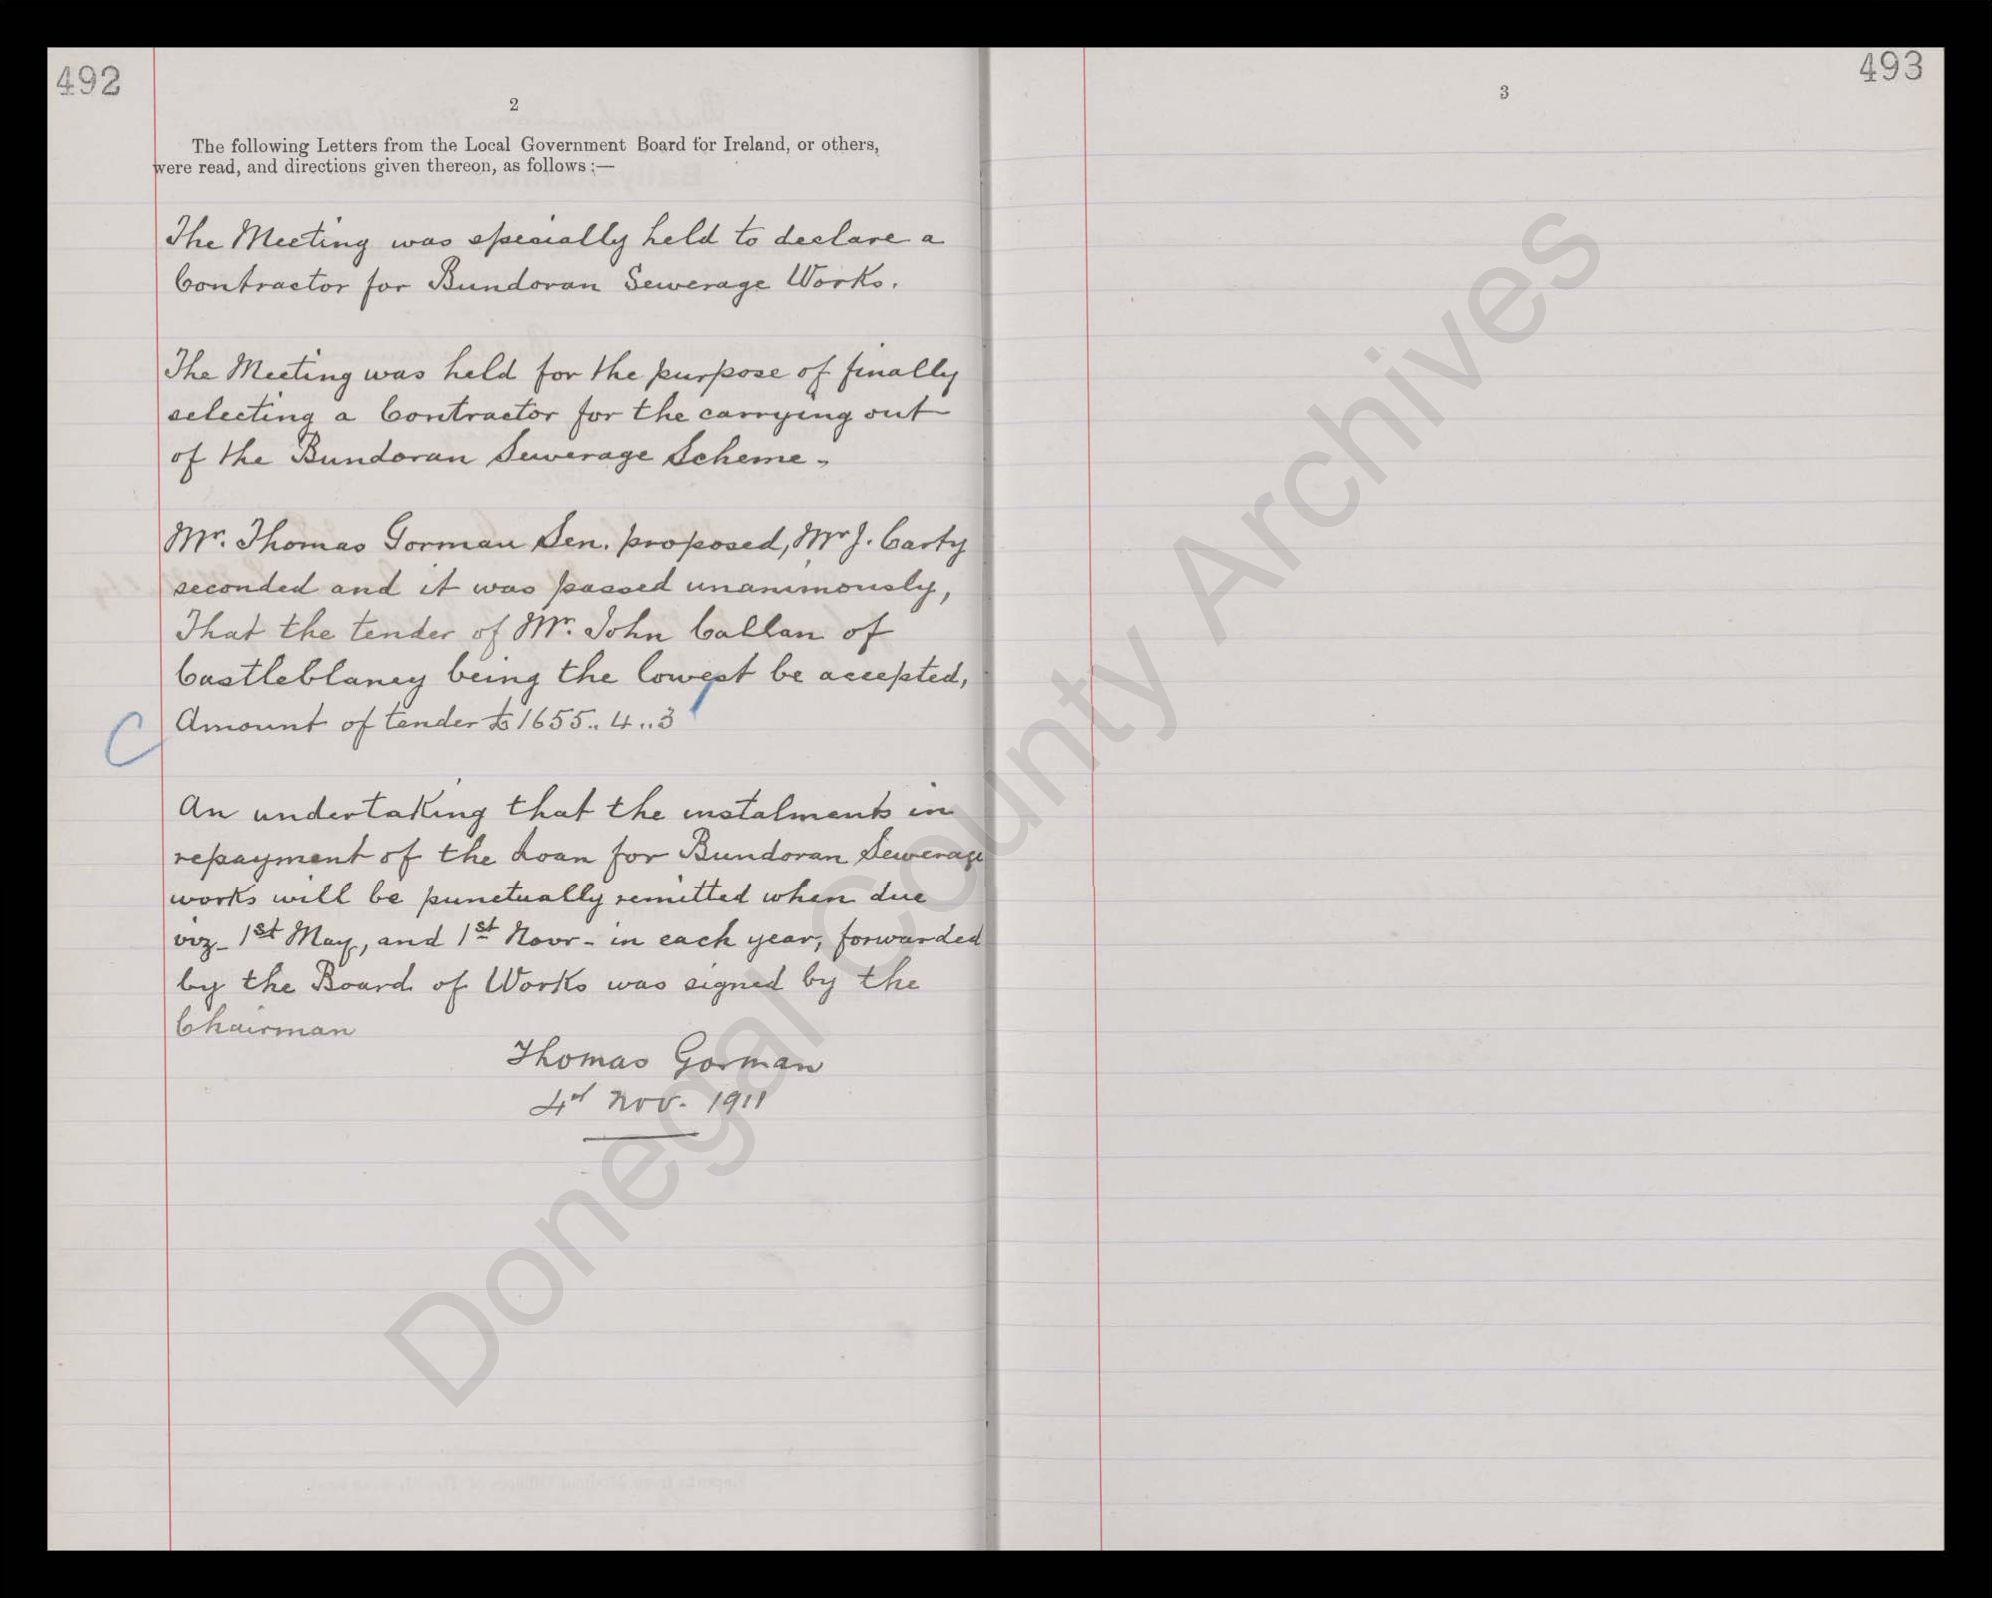 492
2
The following Letters from the Local Government Board for Ireland, or others,
were read, and directions given thereon, as follows:—
The Meeting was specially held to declare a
Contractor for Bundoran Sewerage Works.
The Meeting was held for the purpose of finally
selecting a Contractor for the carrying out
of the Bundoran Sewerage Scheme -
Mr. Thomas Gorman Sen. proposed, Mr J. Carty
seconded and it was passed unanimously,
That the tender of Mr. John Callan of
Castleblaney being the lowest be accepted,
C Amount of tender £1655..4..3
An undertaking that the instalments in
repayment of the Loan for Bundoran Sewerage
works will be punctually remitted when due
viz - 1st May, and 1st Novr - in each year, forwarded
by the Board of Works was signed by the
Chairman
Thomas Gorman
Nov. 1911
493
3
Donegal County Archives